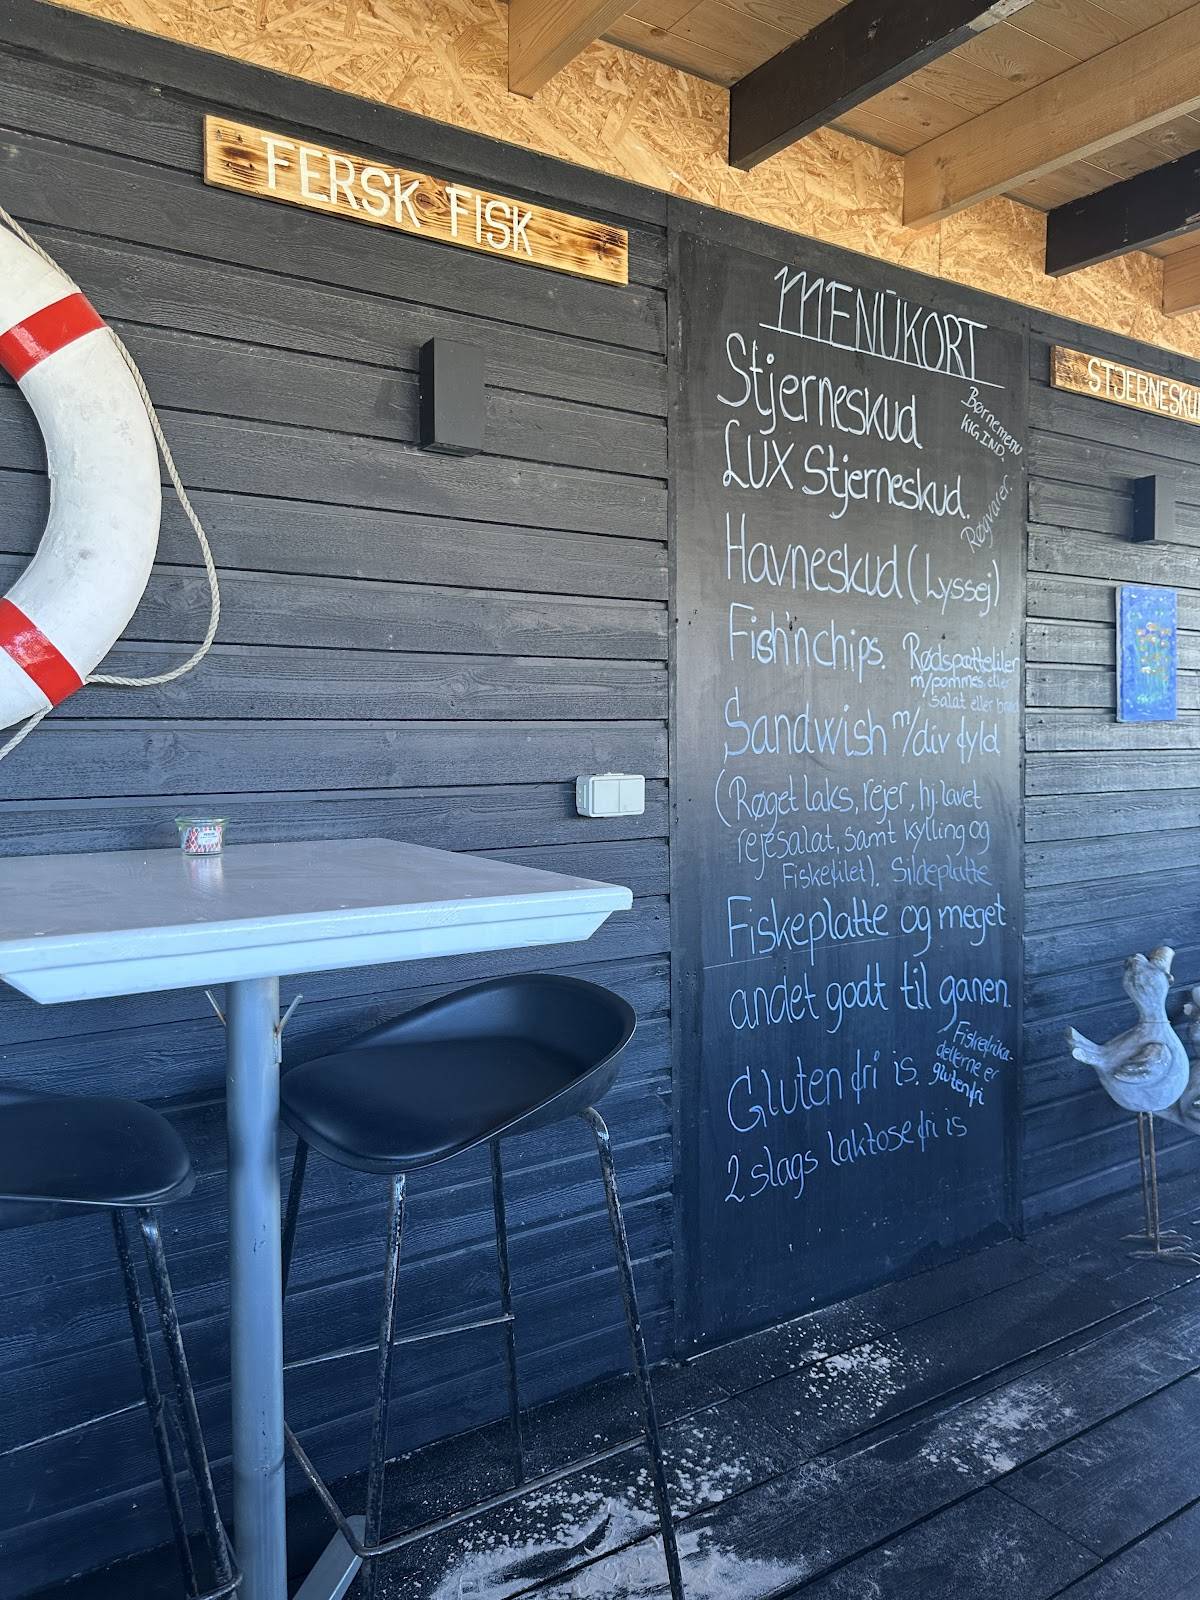 FERSK FISK
MENUKORT
Stjerneskud
Børnemenu
KIG IND.
LUX Stjerneskud.
Røgvarer.
Havneskud (Lyssej)
Fish'n chips.
Rødspættefilet
m/pommes eller
salat eller brød
Sandwish m/div fyld
(Røget laks, rejer, hj. lavet
rejesalat, samt kylling og
Fiskefilet). Sildeplatte
Fiskeplatte og meget
andet godt til ganen.
Gluten fri is.
Fiskefrika-
dellerne er
glutenfri
2 slags laktose fri is
STJERNESKU